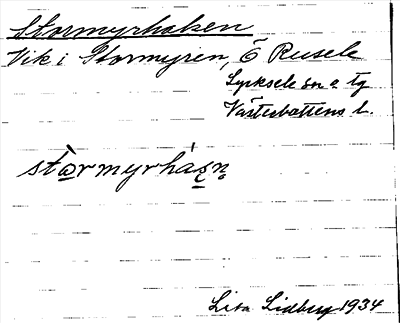 Stormyrhaken
Vik i Stormyren, Ö Rusele
Lycksele sn o tg
Västerbottens l.
stòrmyrháḵn̥
Lisa Lidberg 1934